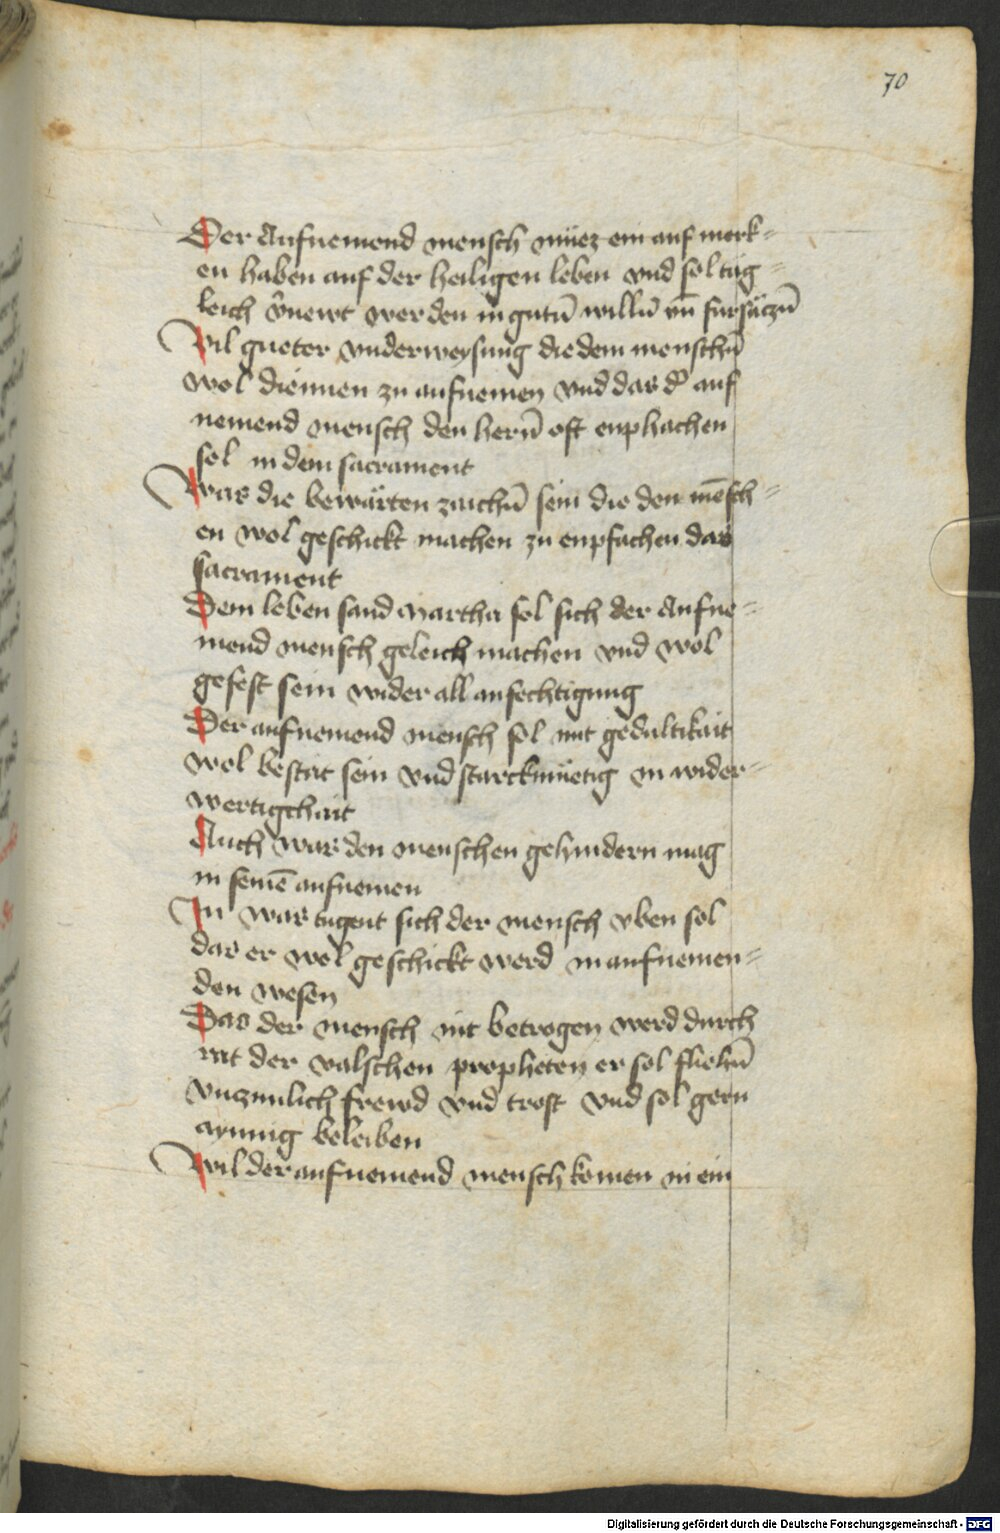 70
Der Aufnemend mensch müez ein auf merk=
en haben auf der heiligen leben vnd sol täg=
leich v̄newt werden in gutn̄ willn̄ vn̄ fürsäczn̄
Vil gueter vnderweysung die dem menschn̄
wol diennen zu aufnemen vnd das d' auf
nemend mensch den hern̄ oft enphachen
sol in dem sacrament
Was die bewärten zaichn̄ sein die den mēsch=
en wol geschickt machen zu enpfachen das
sacrament
Dem leben sand Martha sol sich der Aufne=
mend mensch geleich machen vnd wol
gefest sein wider all anfechtigung
Der aufnemend mensch sol mit gedultikait
wol bestät sein vnd starckmüetig in wider=
wertigchait
Auch was den menschen gehindern mag
in seinē aufnemen
In was tugent sich der mensch vben sol
das er wol geschickt werd in aufnemen=
den wesen
Das der mensch nit betrogen werd durch
rat der valschen propheten er sol fliehn̄
vnczimlich frewd vnd trost vnd sol gern
aynnig beleiben
Wil der aufnemend mensch komen in ein
Digitalisierung gefördert durch die Deutsche Forschungsgemeinschaft - DFG